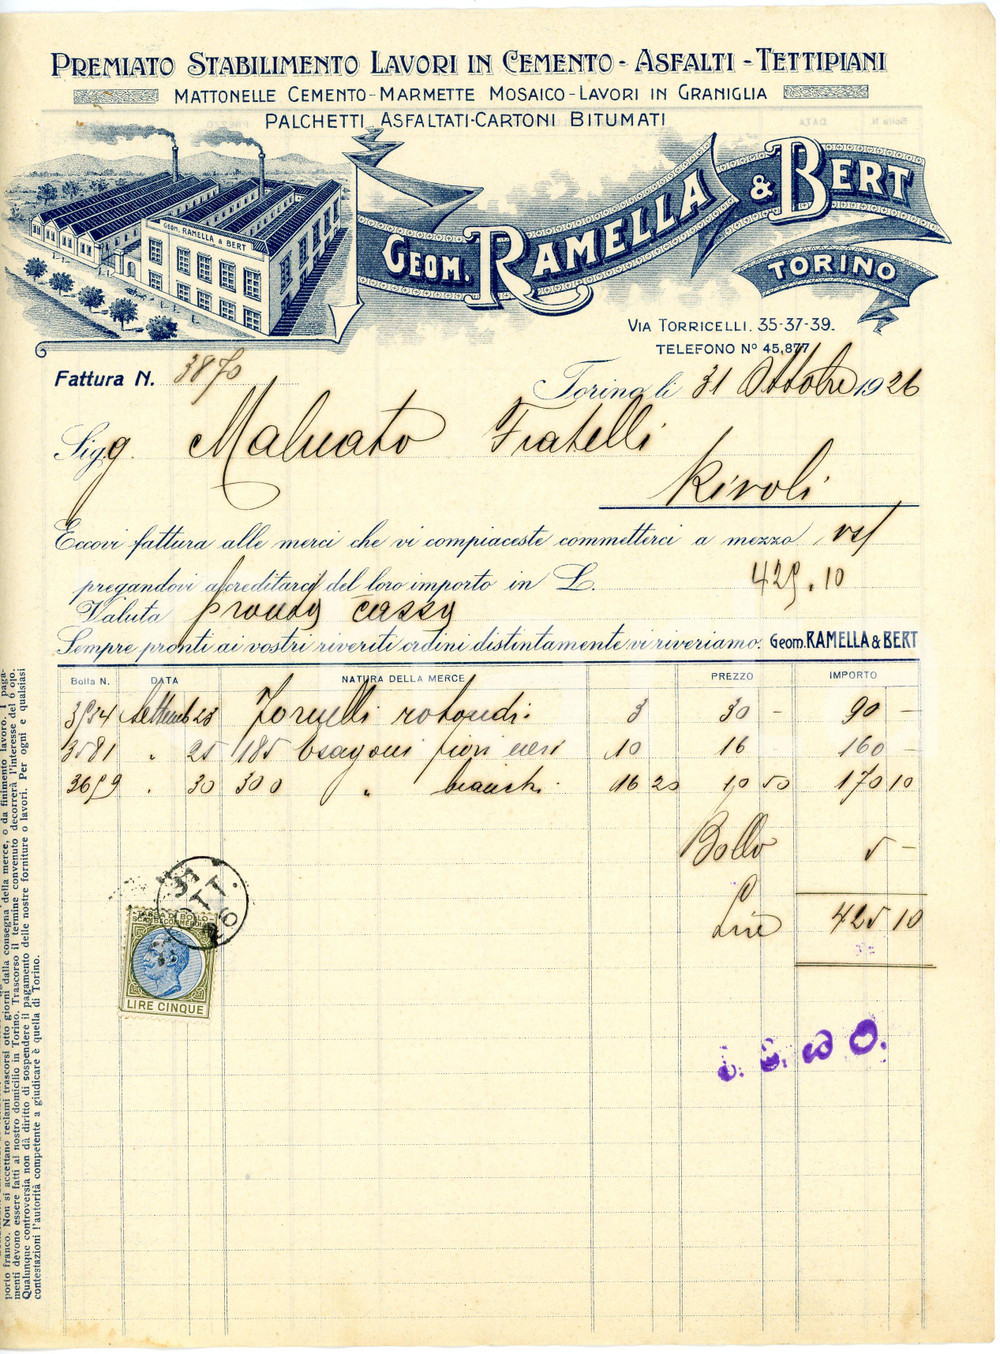 PREMIATO STABILIMENTO LAVORI IN CEMENTO - ASFALTI - TETTIPIANI
MATTONELLE CEMENTO - MARMETTE MOSAICO - LAVORI IN GRANIGLIA
PALCHETTI ASFALTATI - CARTONI BITUMATI
GEOM. RAMELLA & BERT
GEOM. RAMELLA & BERT
TORINO
VIA TORRICELLI. 35-37-39.
TELEFONO Nº 45,877
Fattura N. 3870
Torino li 31 Ottobre 1926
Sigg. Malvato Fratelli
Rivoli
Eccovi fattura alle merci che vi compiaceste commetterci a mezzo vs/
pregandovi accreditarci del loro importo in L. 425.10
Valuta pronta cassa
Sempre pronti ai vostri riveriti ordini distintamente vi riveriamo. Geom. RAMELLA & BERT
Bolla N. DATA NATURA DELLA MERCE PREZZO IMPORTO
3534 Settemb 23 Fornelli rotondi. 3 30 - 90 -
3581 " 25 185 Esagoni fiori neri 10 16 160 -
3659 " 30 300 " bianchi 16 20 10 50 170 10
Bollo 5 -
Lire 425 10
TASSA DI BOLLO
SCAMBI COMMERCIALI
LIRE CINQUE
porto franco. Non si accettano reclami trascorsi otto giorni dalla consegna della merce, o da finimento lavoro. I paga-
menti devono essere fatti al nostro domicilio in Torino. Trascorso il termine convenuto decorrerà l'interesse del 6 %.
Qualunque controversia non dà diritto di sospendere il pagamento delle nostre forniture o lavori. Per ogni e qualsiasi
contestazioni l'autorità competente a giudicare è quella di Torino.